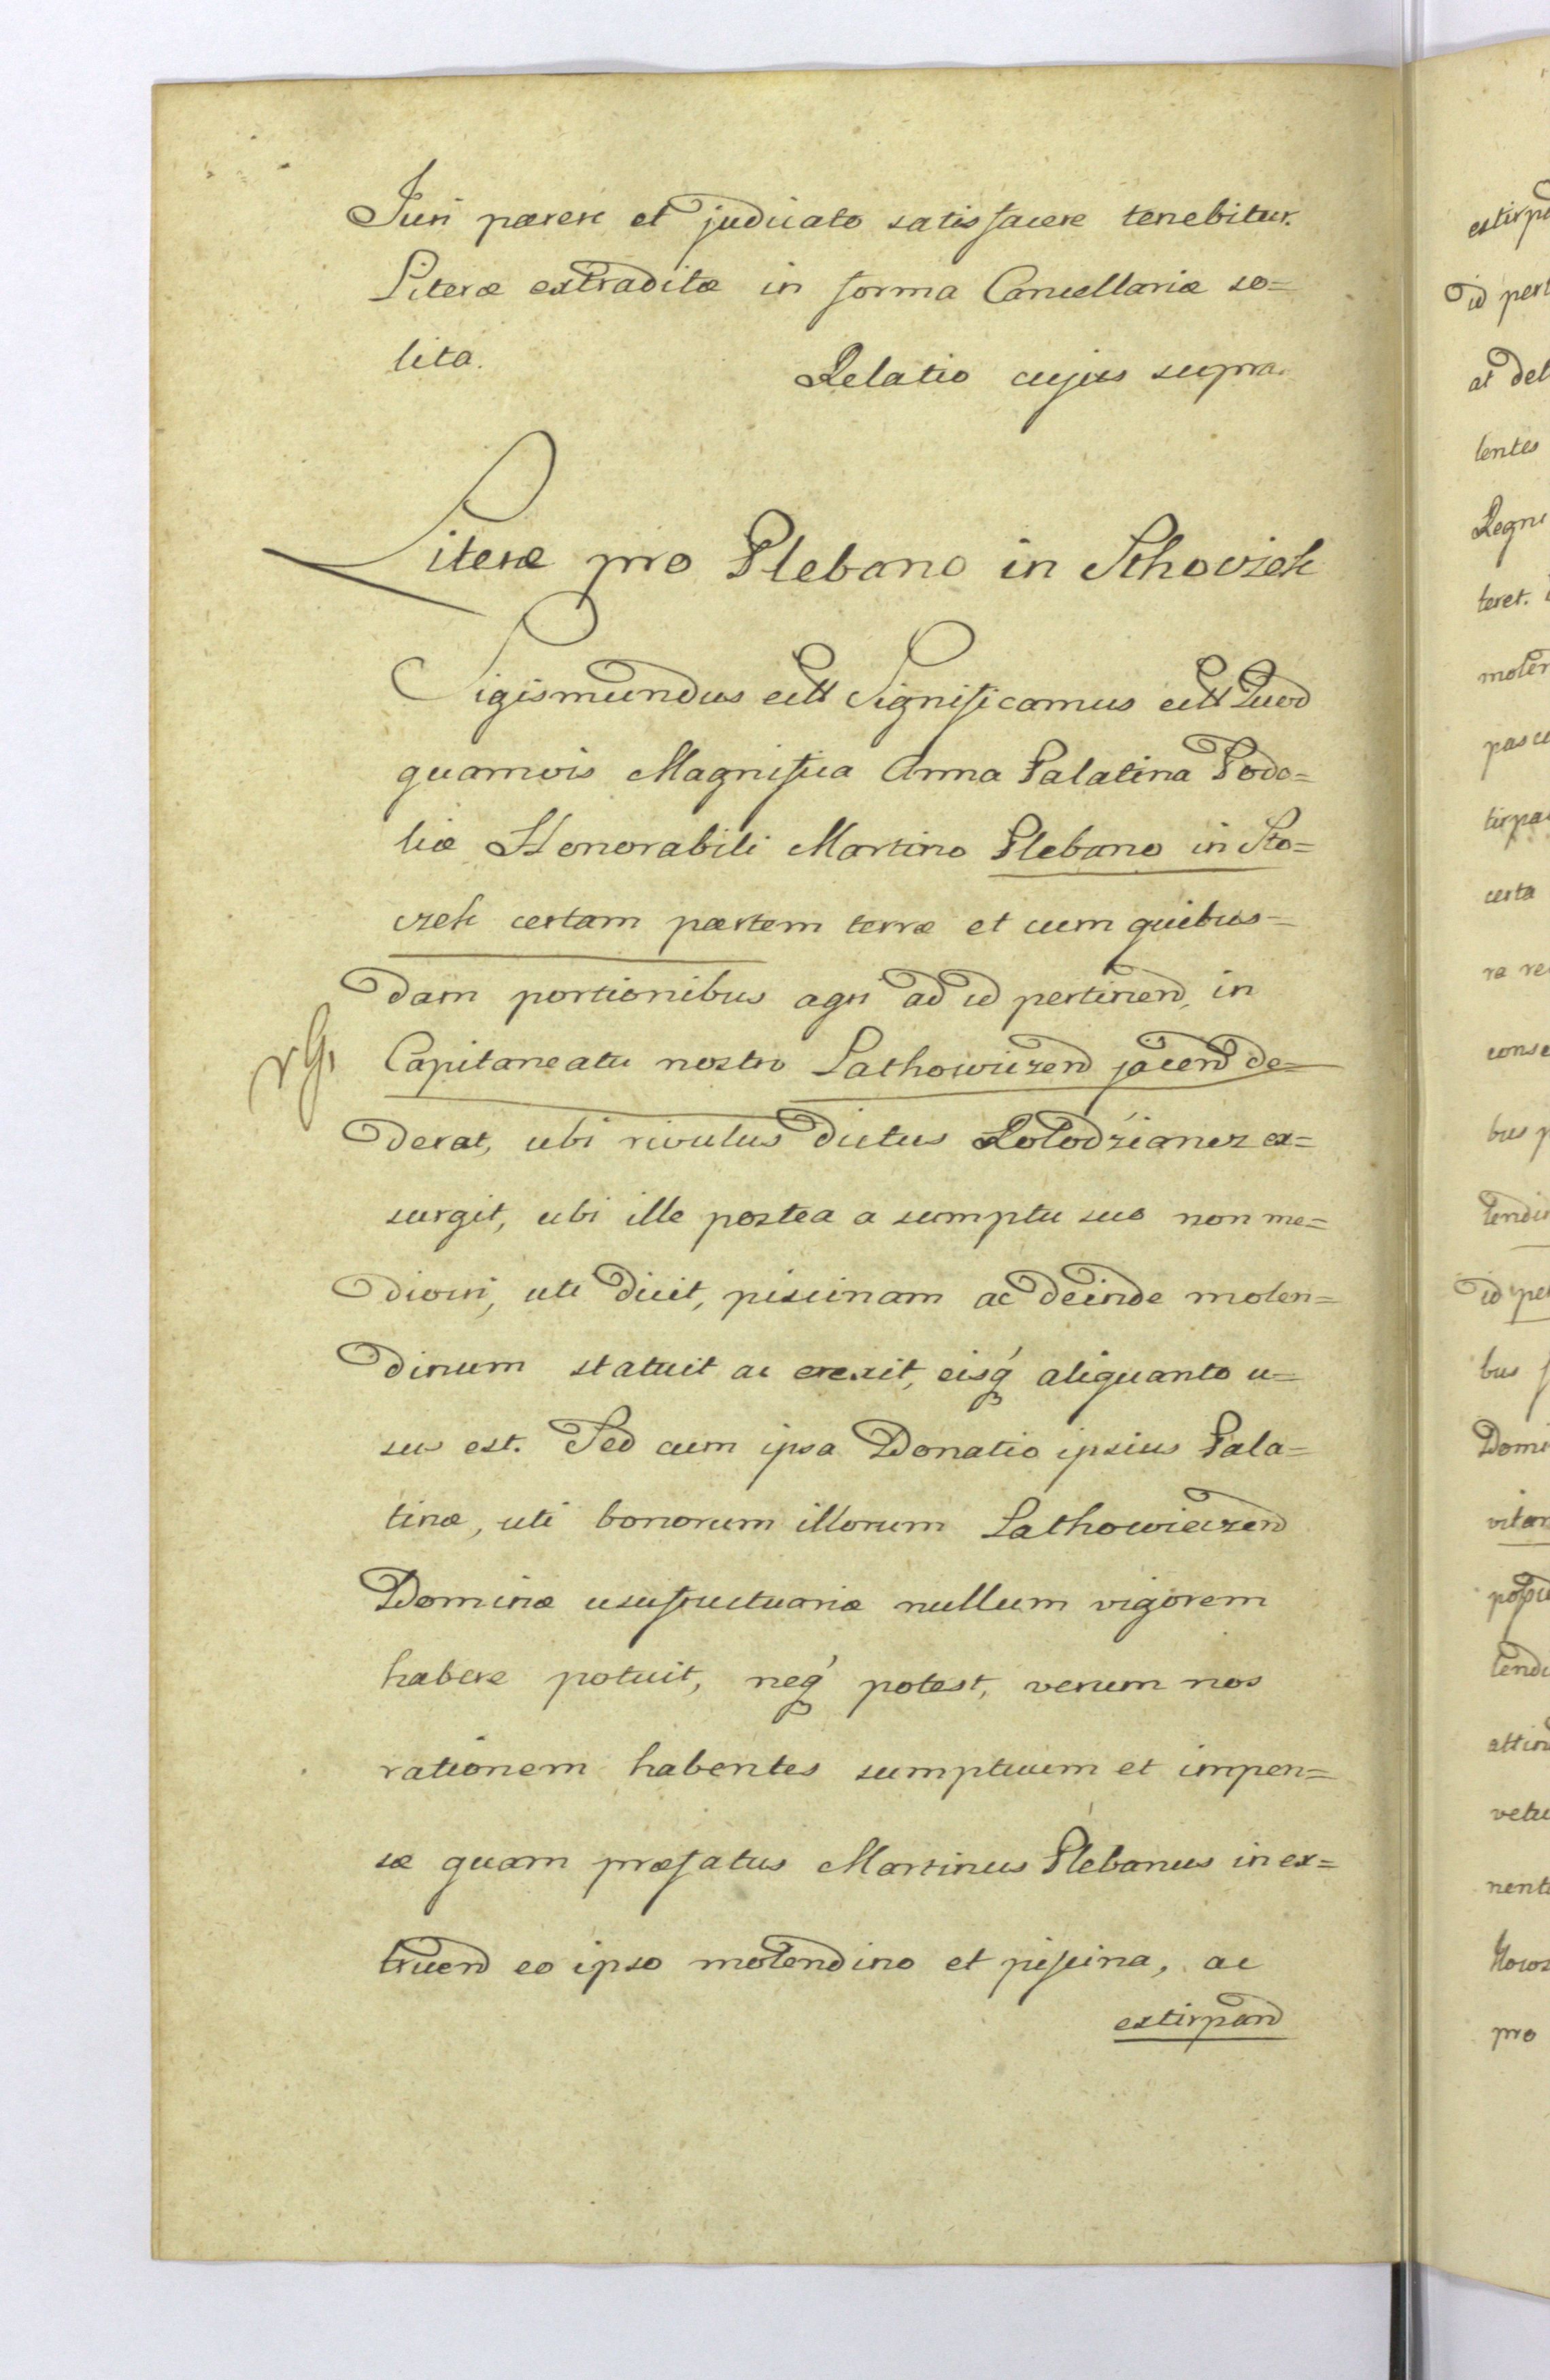 Juri parere et judicato satisfacere tenebitur.
Literæ extraditæ in forma Cancellariæ so=
lita.
Relatio cujus supra.
Literæ pro Plebano in Sthovzek
Sigismundus ect Significamus ect Quod
quamvis Magnifica Anna Palatina Podo=
liæ Honorabili Martino Plebano in Sto=
czek certam partem terræ et cum quibus=
dam portionibus agri ad id pertinend, in
Capitaneatu nostro Lathowiczend jacend de=
derat, ubi rivulus dictus Kołodzianez ex=
surgit, ubi ille postea a sumptu suo non me=
diocri, uti dicit, piscinam ac deinde molen=
dinum statuit ac erexit, eisq' aliquanto u=
sus est. Sed cum ipsa Donatio ipsius Pala=
tinæ, uti bonorum illorum Lathowieczend
Dominæ usufructuariæ nullum vigorem
habere potuit, neq' potest, verum nos
rationem habentes sumptuum et impen=
sæ quam præfatus Martinus Plebanus in ex=
truend eo ipso molendino et piscina, ac
extirpand
estirpa
id pert
at del
lentes
Regni
teret.
molen
pascu
tirpa
certa
ra re
conse
bus p
tendu
id pe
bus
Domi
vitan
tendu
attin
vetu
nent
pro